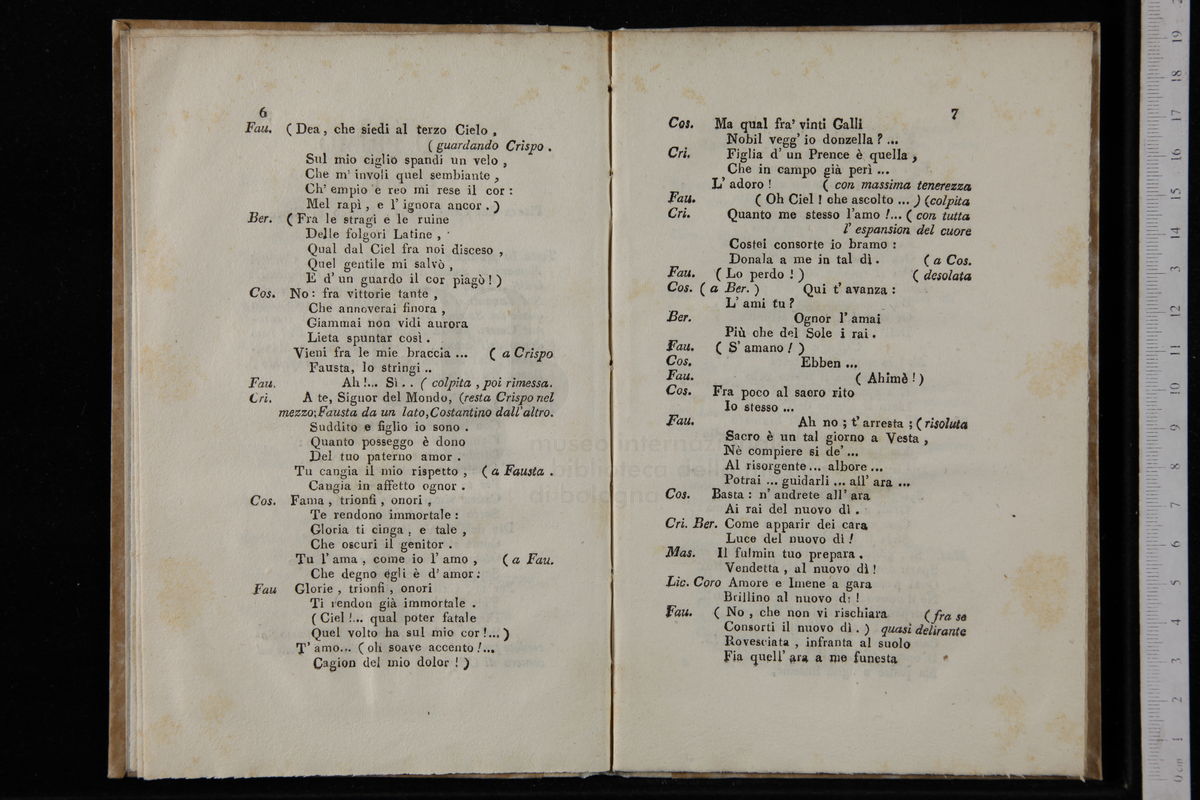 6
Fau. ( Dea, che siedi al terzo Cielo,
( guardando Crispo.
Sul mio ciglio spandi un velo,
Che m' involi quel sembiante,
Ch' empio e reo mi rese il cor:
Mel rapì, e l' ignora ancor. )
Ber. ( Fra le stragi e le ruine
Delle folgori Latine,
Qual dal Ciel fra noi disceso,
Quel gentile mi salvò,
E d' un guardo il cor piagò! )
Cos. No: fra vittorie tante,
Che annoverai finora,
Giammai non vidi aurora
Lieta spuntar così.
Vieni fra le mie braccia ... ( a Crispo
Fausta, lo stringi ..
Fau. Ah!... Sì .. ( colpita, poi rimessa.
Cri. A te, Signor del Mondo, (resta Crispo nel
mezzo; Fausta da un lato, Costantino dall'altro.
Suddito e figlio io sono.
Quanto posseggo è dono
Del tuo paterno amor.
Tu cangia il mio rispetto, ( a Fausta.
Cangia in affetto ognor.
Cos. Fama, trionfi, onori,
Te rendono immortale:
Gloria ti cinga, e tale,
Che oscuri il genitor.
Tu l' ama, come io l' amo, ( a Fau.
Che degno egli è d' amor:
Fau Glorie, trionfi, onori
Ti rendon già immortale.
( Ciel!... qual poter fatale
Quel volto ha sul mio cor!... )
T' amo... ( oh soave accento!...
Cagion del mio dolor! )
7
Cos. Ma qual fra' vinti Galli
Nobil vegg' io donzella? ...
Cri. Figlia d' un Prence è quella,
Che in campo già perì ...
L' adoro! ( con massima tenerezza
Fau. ( Oh Ciel! che ascolto ... ) (colpita
Cri. Quanto me stesso l'amo!... ( con tutta
l' espansion del cuore
Costei consorte io bramo:
Donala a me in tal dì. ( a Cos.
Fau. ( Lo perdo! ) ( desolata
Cos. ( a Ber. ) Qui t' avanza:
L' ami tu?
Ber. Ognor l' amai
Più che del Sole i rai.
Fau. ( S' amano! )
Cos. Ebben ...
Fau. ( Ahimè! )
Cos. Fra poco al sacro rito
Io stesso ...
Fau. Ah no; t' arresta; ( risoluta
Sacro è un tal giorno a Vesta,
Nè compiere si de' ...
Al risorgente... albore ...
Potrai ... guidarli ... all' ara ...
Cos. Basta: n' andrete all' ara
Ai rai del nuovo dì.
Cri. Ber. Come apparir dei cara
Luce del nuovo dì!
Mas. Il fulmin tuo prepara.
Vendetta, al nuovo dì!
Lic. Coro Amore e Imene a gara
Brillino al nuovo dì!
Fau. ( No, che non vi rischiara (fra se
Consorti il nuovo dì. ) quasi delirante
Rovesciata, infranta al suolo
Fia quell' ara a me funesta
museo internaz
biblioteca del
di bologna
0 cm 1 2 3 4 5 6 7 8 9 10 11 12 13 14 15 16 17 18 19